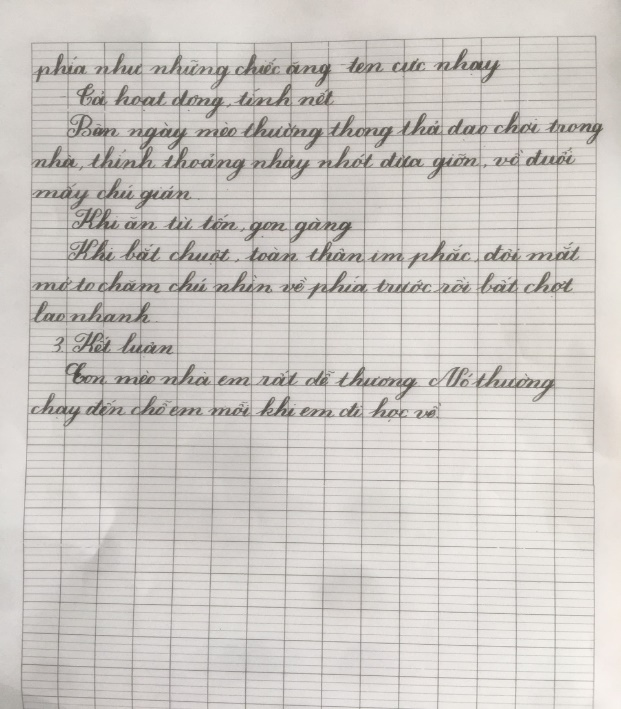 phía như những chiếc ăng-ten cực nhạy
Tả hoạt động, tính nết
Ban ngày mèo thường thong thả dạo chơi trong
nhà, thỉnh thoảng nhảy nhót đùa giỡn, vồ đuổi
mấy chú gián.
Khi ăn từ tốn, gọn gàng
Khi bắt chuột, toàn thân im phắc, đôi mắt
mở to chăm chú nhìn về phía trước rồi bất chợt
lao nhanh.
3. Kết luận
Con mèo nhà em rất dễ thương. Nó thường
chạy đến chỗ em mỗi khi em đi học về.